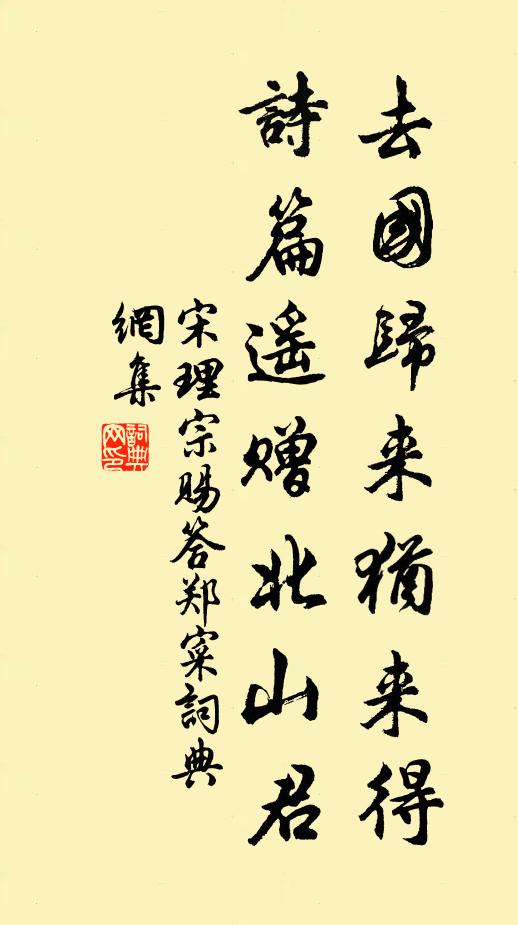 去國歸来猶来得
詩篇遥贈北山君
宋理宗賜答郑寀詞典
網集
詞典网印